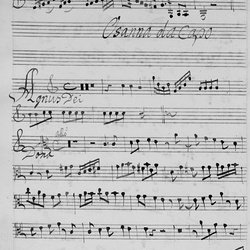 Osanna da Capo
Agnus Dei
allo
Dona